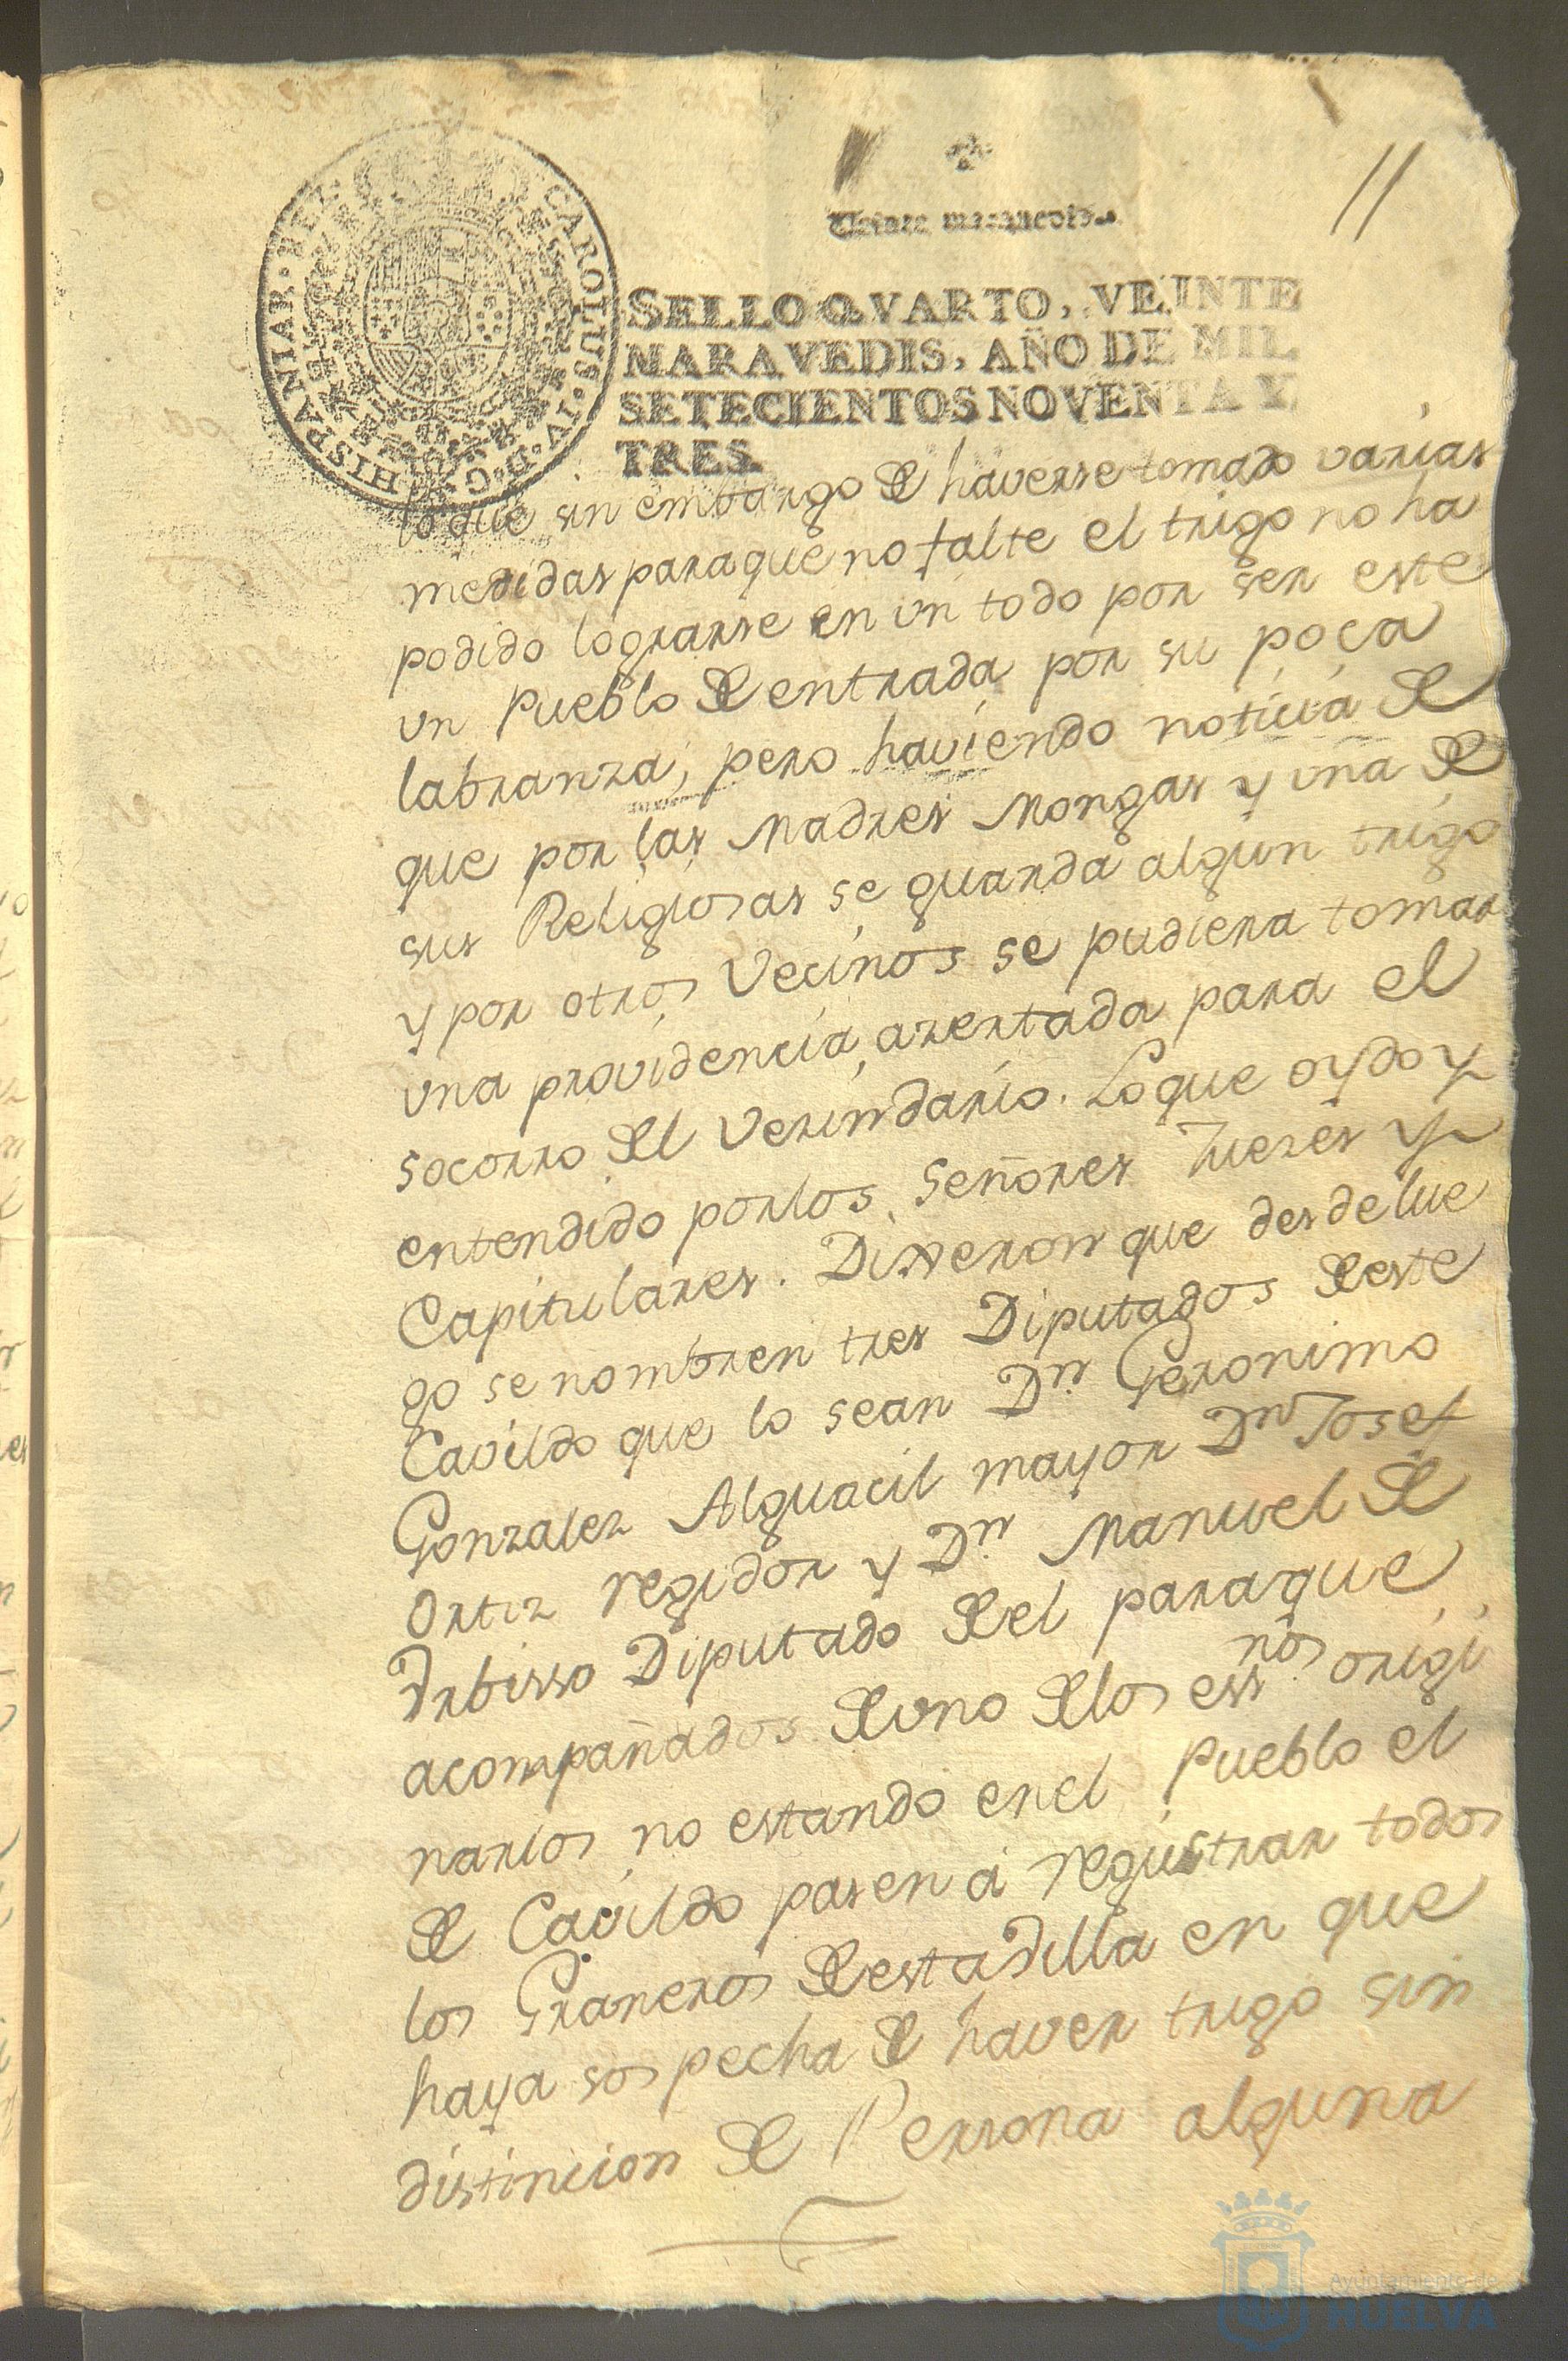 11
Veinte maravedis.
CAROLUS·IV·D·G·HISPANIAR·REX·
SELLO QVARTO, VEINTE
MARAVEDIS, AÑO DE MIL
SETECIENTOS NOVENTA Y
TRES.
lo que sin embargo de haverse tomado varias
medidas paraque no falte el trigo no ha
podido lograrse en un todo por ser este
un Pueblo de entrada por su poca
labranza, pero haviendo noticia de
que por las Madres Mongas y una de
sus Religiosas se guarda algun trigo
y por otros Vecinos se pudiera tomar
una providencia azertada para el
socorro del Vecindario. Loque oydo y
entendido porlos Señores Juezes y
Capitulares. Dixeron que desdelue
go se nombren tres Diputados deeste
Cavildo que lo sean Dn. Geronimo
Gonzalez Alguacil mayor Dn Josef
Ortiz regidor y Dn. Manuel de
Diputado del paraque
acompañados de uno delos essnos. origi
narios no estando enel Pueblo el
de Cavildo pasen á registrar todos
los Graneros deestadilla en que
haya sospecha de haver trigo sin
distincion de Persona alguna
Ayuntamiento de
HUELVA